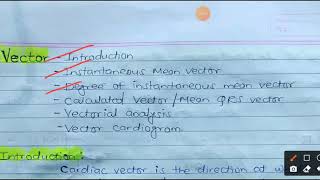 Vector - Introduction
- Instantaneous Mean vector
- Degree of instantaneous mean vector
- Calculated Vector/Mean QRS vector
- Vectorial analysis
- Vector cardiogram
Introduction:
Cardiac vector is the direction at